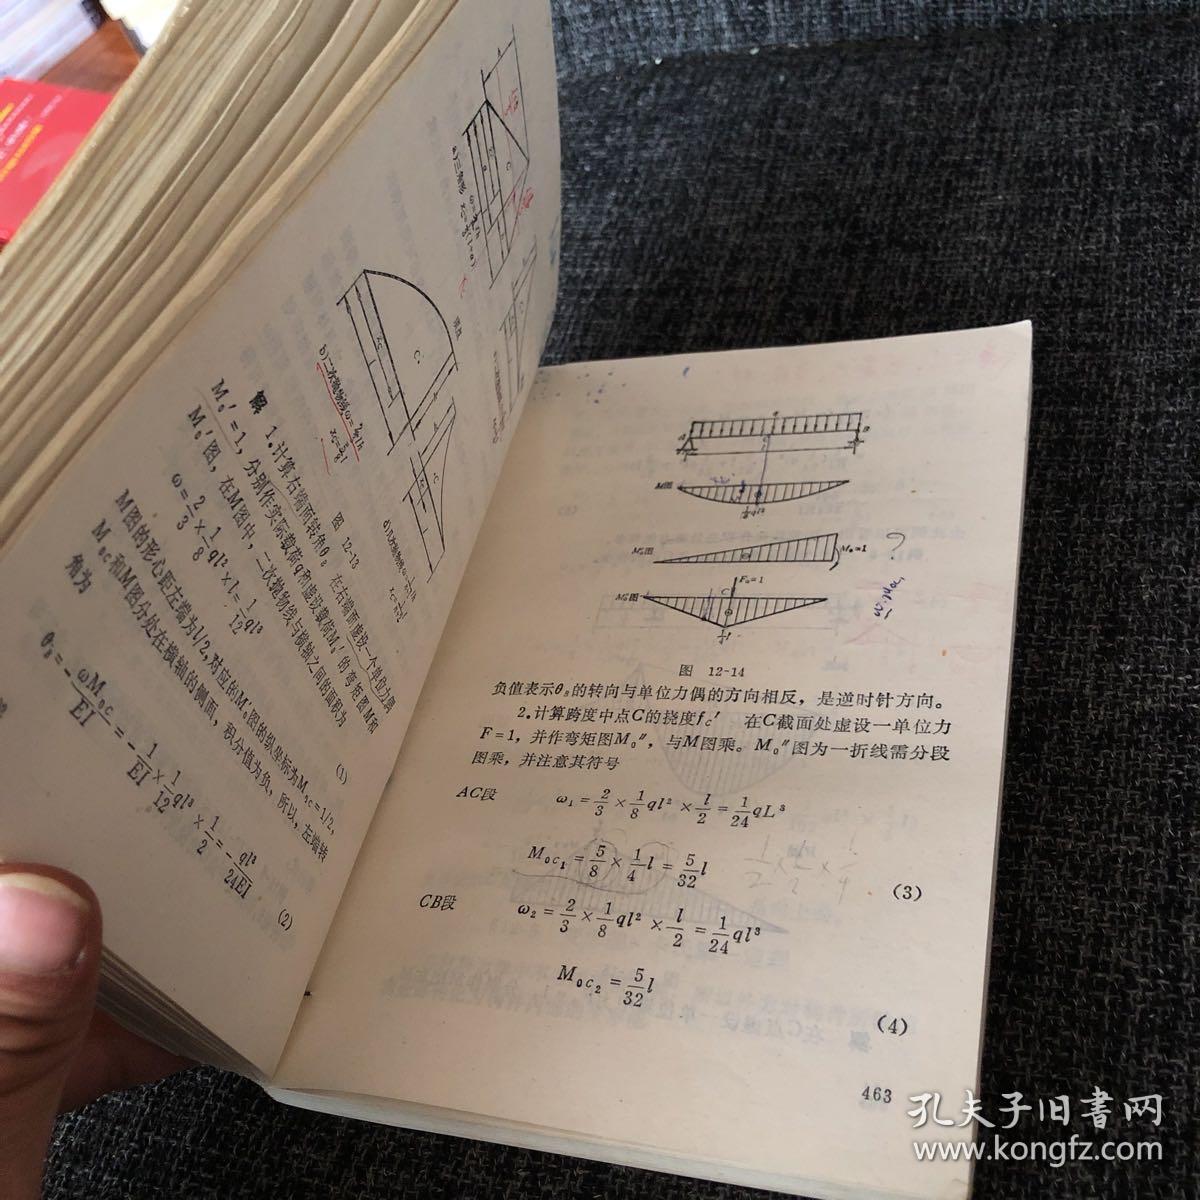 a)三角形
b)二次抛物线ω=2/3lh
图 12-13
解 1.计算右端面转角θB 在右端面虚设一个单位力偶
M₀′=1,分别作实际载荷q和虚设载荷M₀′的弯矩图M和
M₀′图,在M图中,二次抛物线与横轴之间的面积为
ω=2/3×1/8ql²×l=1/12ql³
(1)
M图的形心距左端为l/2,对应的M₀′图的纵坐标为M₀c=1/2,
M₀c和M图分处在横轴的侧面,积分值为负,所以,左端转
角为
θB=-ωM₀c/EI=-1/EI×1/12ql³×1/2=-ql³/24EI
(2)
q
M图
M₀′图
M₀=1
?
F₀=1
M₀″图
图 12-14
负值表示θB的转向与单位力偶的方向相反,是逆时针方向。
2.计算跨度中点C的挠度fc′ 在C截面处虚设一单位力
F=1,并作弯矩图M₀″,与M图乘。M₀″图为一折线需分段
图乘,并注意其符号
AC段 ω₁=2/3×1/8ql²×l/2=1/24qL³
M₀c₁=5/8×1/4l=5/32l
(3)
CB段 ω₂=2/3×1/8ql²×l/2=1/24ql³
M₀c₂=5/32l
(4)
463
孔夫子旧书网
www.kongfz.com